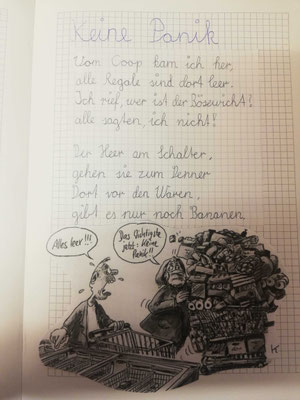 Keine Panik
Vom Coop kam ich her,
alle Regale sind dort leer.
Ich rief, wer ist der Bösewicht!
alle sagten, ich nicht!
Der Heer am Schalter,
gehen sie zum Denner
Dort vor den Waren,
gibt es nur noch Bananen.
Alles leer!!!
Das Wichtigste
jetzt: Keine
Panik!!